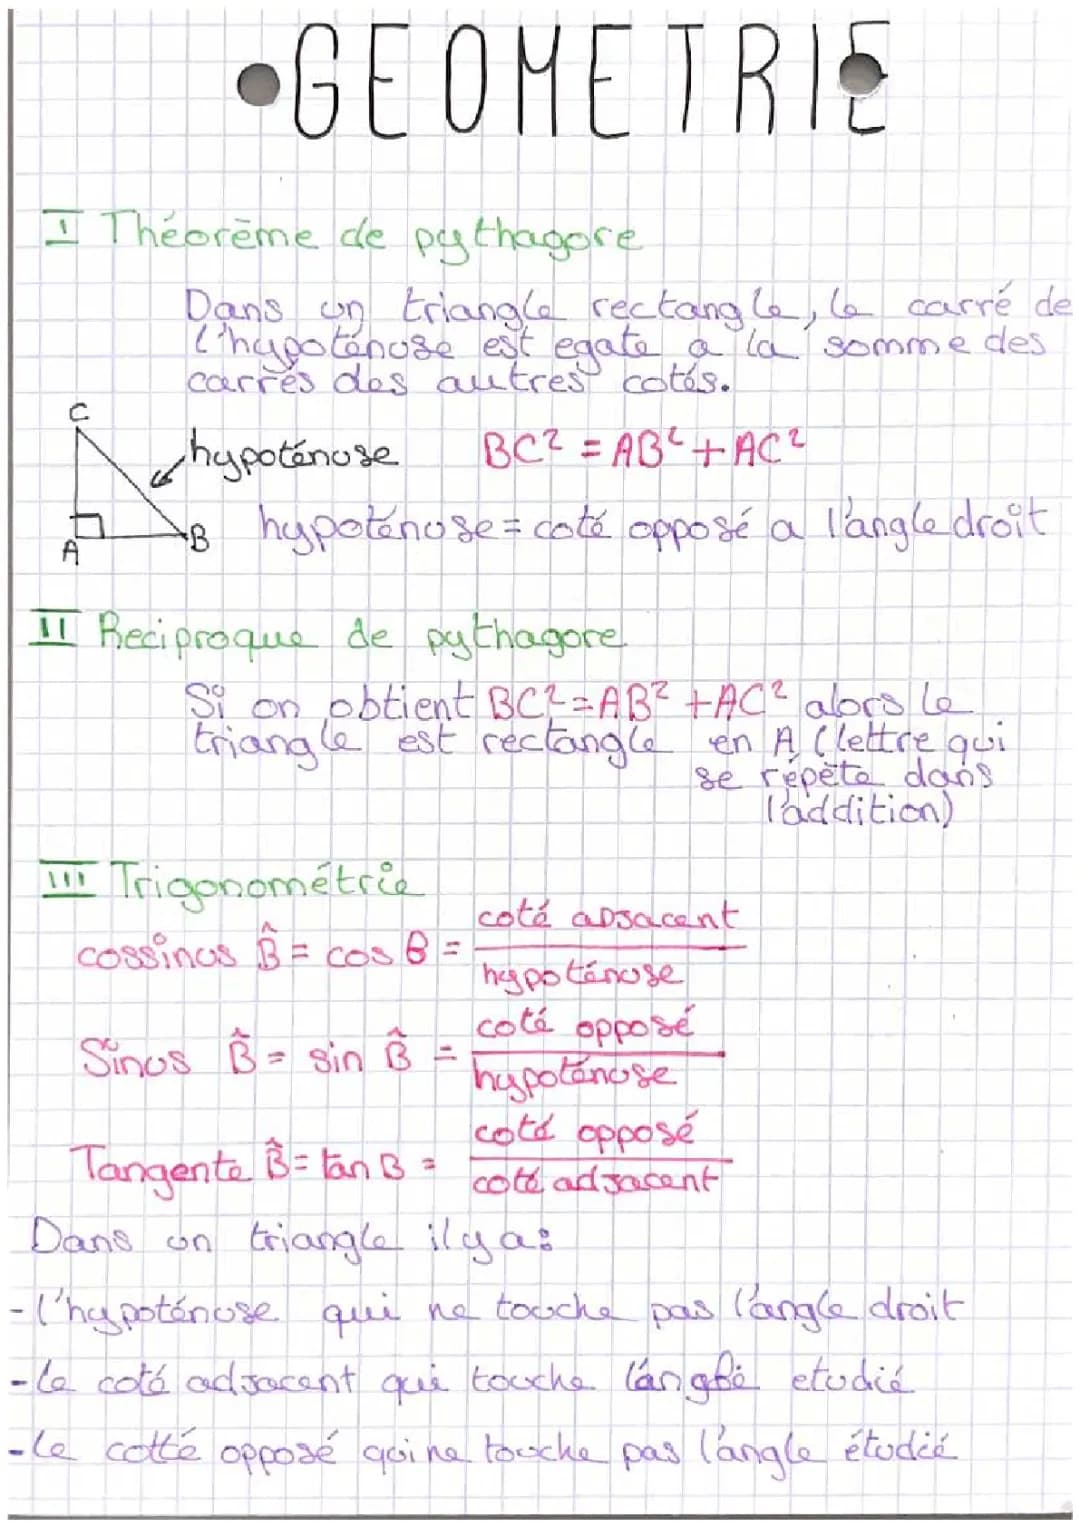 •GEOMETRIE
I Théorème de pythagore
Dans un triangle rectangle, le carré de
l'hypoténuse est egale a la somme des
carrés des autres cotés.
C
hypoténuse BC² = AB² + AC²
A B hypoténuse = coté opposé a l'angle droit
II Reciproque de pythagore
Si on obtient BC² = AB² + AC² alors le
triangle est rectangle en A (lettre qui
se répète dans
l'addition)
III Trigonométrie
cossinus B̂ = cos B = coté adjacent
hypoténuse
Sinus B̂ = sin B̂ = coté opposé
hypoténuse
Tangente B̂ = tan B = coté opposé
coté adjacent
Dans un triangle il y a:
- l'hypoténuse qui ne touche pas l'angle droit
- le coté adjacent qui touche l'angle etudié
- le cotté opposé qui ne touche pas l'angle étudié